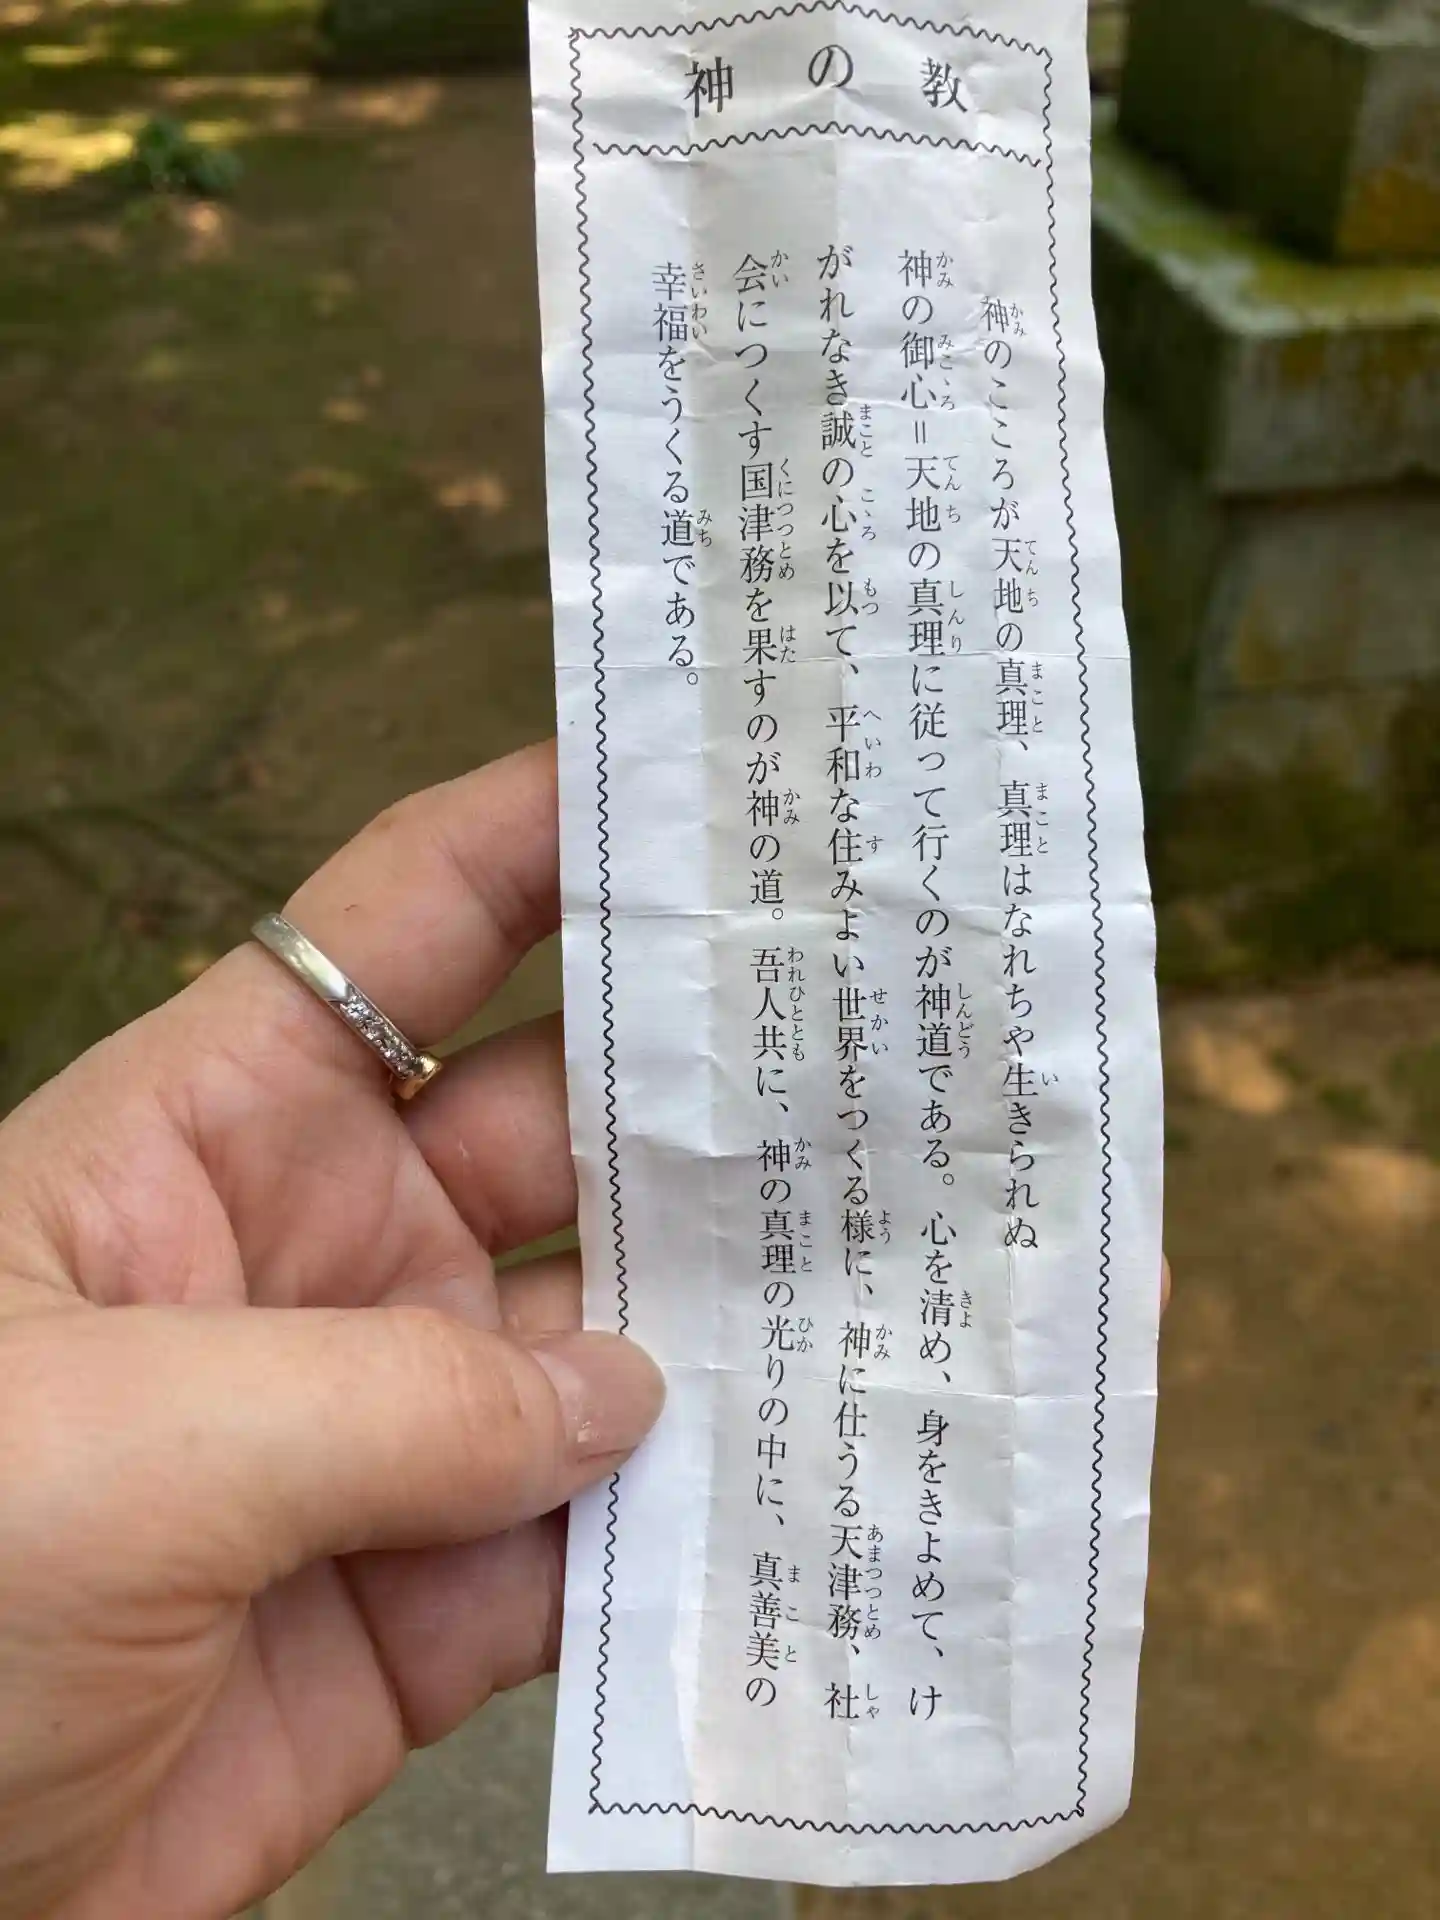 神の教
神のこころが天地の真理、真理はなれちや生きられぬ
神の御心＝天地の真理に従って行くのが神道である。心を清め、身をきよめて、け
がれなき誠の心を以て、平和な住みよい世界をつくる様に、神に仕うる天津務、社
会につくす国津務を果すのが神の道。吾人共に、神の真理の光りの中に、真善美の
幸福をうくる道である。